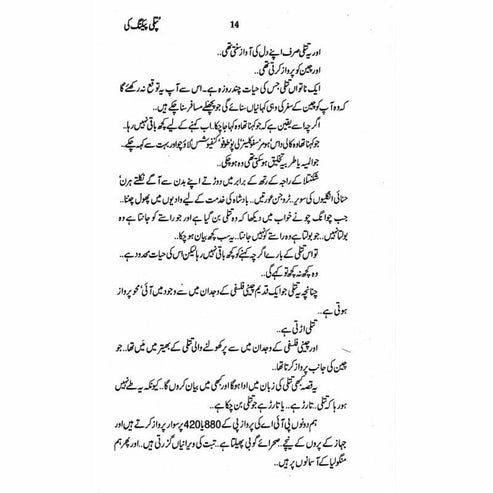 14 پتلی پیکنگ کی
اور یہ تتلی صرف اپنے دل کی آواز سنتی تھی..
اور چین کو پرواز کرتی تھی..
ایک ناتواں تتلی جس کی حیات چند روزہ ہے۔ اس سے آپ یہ توقع نہ رکھئے گا
کہ وہ آپ کو چین کے سفر کی وہی کہانیاں سنائے گی جو پچھلے مسافر سنا چکے ہیں..
اگرچہ اسے یقین ہے کہ جو کہنا تھا وہ کہا جا چکا۔ اب کہنے کے لیے کچھ باقی نہیں رہا..
جو کہنا تھا وہ کالی داس' ہومر' سفوکلیز' لی پو' طوفو' کنفیوشس لاؤ چو اور بہت سے کہہ چکے..
جو المیہ یا طربیہ تخلیق ہو سکتی تھی وہ ہو چکی..
شکنتلا کے راجہ کے رتھ کے برابر میں دوڑتے اپنے بدن سے آگے نکلتے ہرن'
حنائی انگلیوں کی سویر.. ٹروجن عورتیں.. بادشاہ کی خدمت کے لیے وادیوں میں پھول چننا..
جب چوانگ چو نے خواب میں دیکھا کہ وہ تتلی بن گیا ہے اور جو راستے کو جانتا ہے وہ
بولتا نہیں.. جو بولتا ہے وہ راستے کو نہیں جانتا.. یہ سب کچھ بیان ہو چکا..
تو اس تتلی کے بارے اگرچہ کہنے کو کچھ باقی نہیں رہا لیکن اس کی حیات محدود ہے..
وہ کچھ نہ کچھ تو کہے گی..
چنانچہ یہ تتلی جو ایک قدیم چینی فلسفی کے وجدان میں سے وجود میں آئی' محو پرواز
ہوتی ہے..
تتلی اڑتی ہے..
اور چینی فلسفی کے وجدان میں سے پر کھولنے والی تتلی کے بھیتر میں میں تھا.. جو
چین کی جانب پرواز کرتا تھا..
یہ قصہ کبھی تتلی کی زبان میں ادا ہو گا اور کبھی میں بیان کروں گا.. کیونکہ یہ طے نہیں
ہو رہا کہ تتلی.. تارڑ ہے.. یا تارڑ ہے جو تتلی بن چکا ہے..
ہم دونوں پی آئی اے کی پرواز پی کے 880 یا 420 پر سوار پرواز کرتے ہیں اور
جہاز کے پروں کے نیچے.. صحرائے گوبی پھیلتا ہے.. تبت کی ویرانیاں گزرتی ہیں.. اور پھر ہم
منگولیا کے آسمانوں پر ہیں..